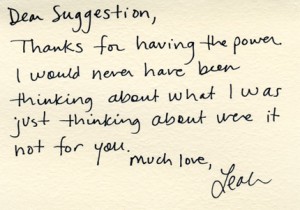 Dear Suggestion,
Thanks for having the power
I would never have been
thinking about what I was
just thinking about were it
not for you.
much love,
Leah